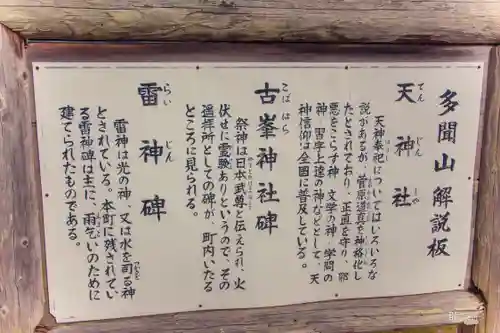 多聞山解説板
天神社
てんじんしゃ
天神奉祀についてはいろいろな
説があるが、菅原道真を神格化し
たとされており、正直を守り、邪
悪をこらす神、文学の神、学問の
神、習字上達の神などとして、天
神信仰は全国に普及している。
古峯神社碑
こばはら
祭神は日本武尊と伝えられ、火
伏せに霊験ありというので、その
遥拝所としての碑が、町内いたる
ところに見られる。
雷神碑
らいじん
雷神は光の神、又は水を司る神
とされている。本町に残されてい
る雷神碑は主に、雨乞いのために
建てられたものである。